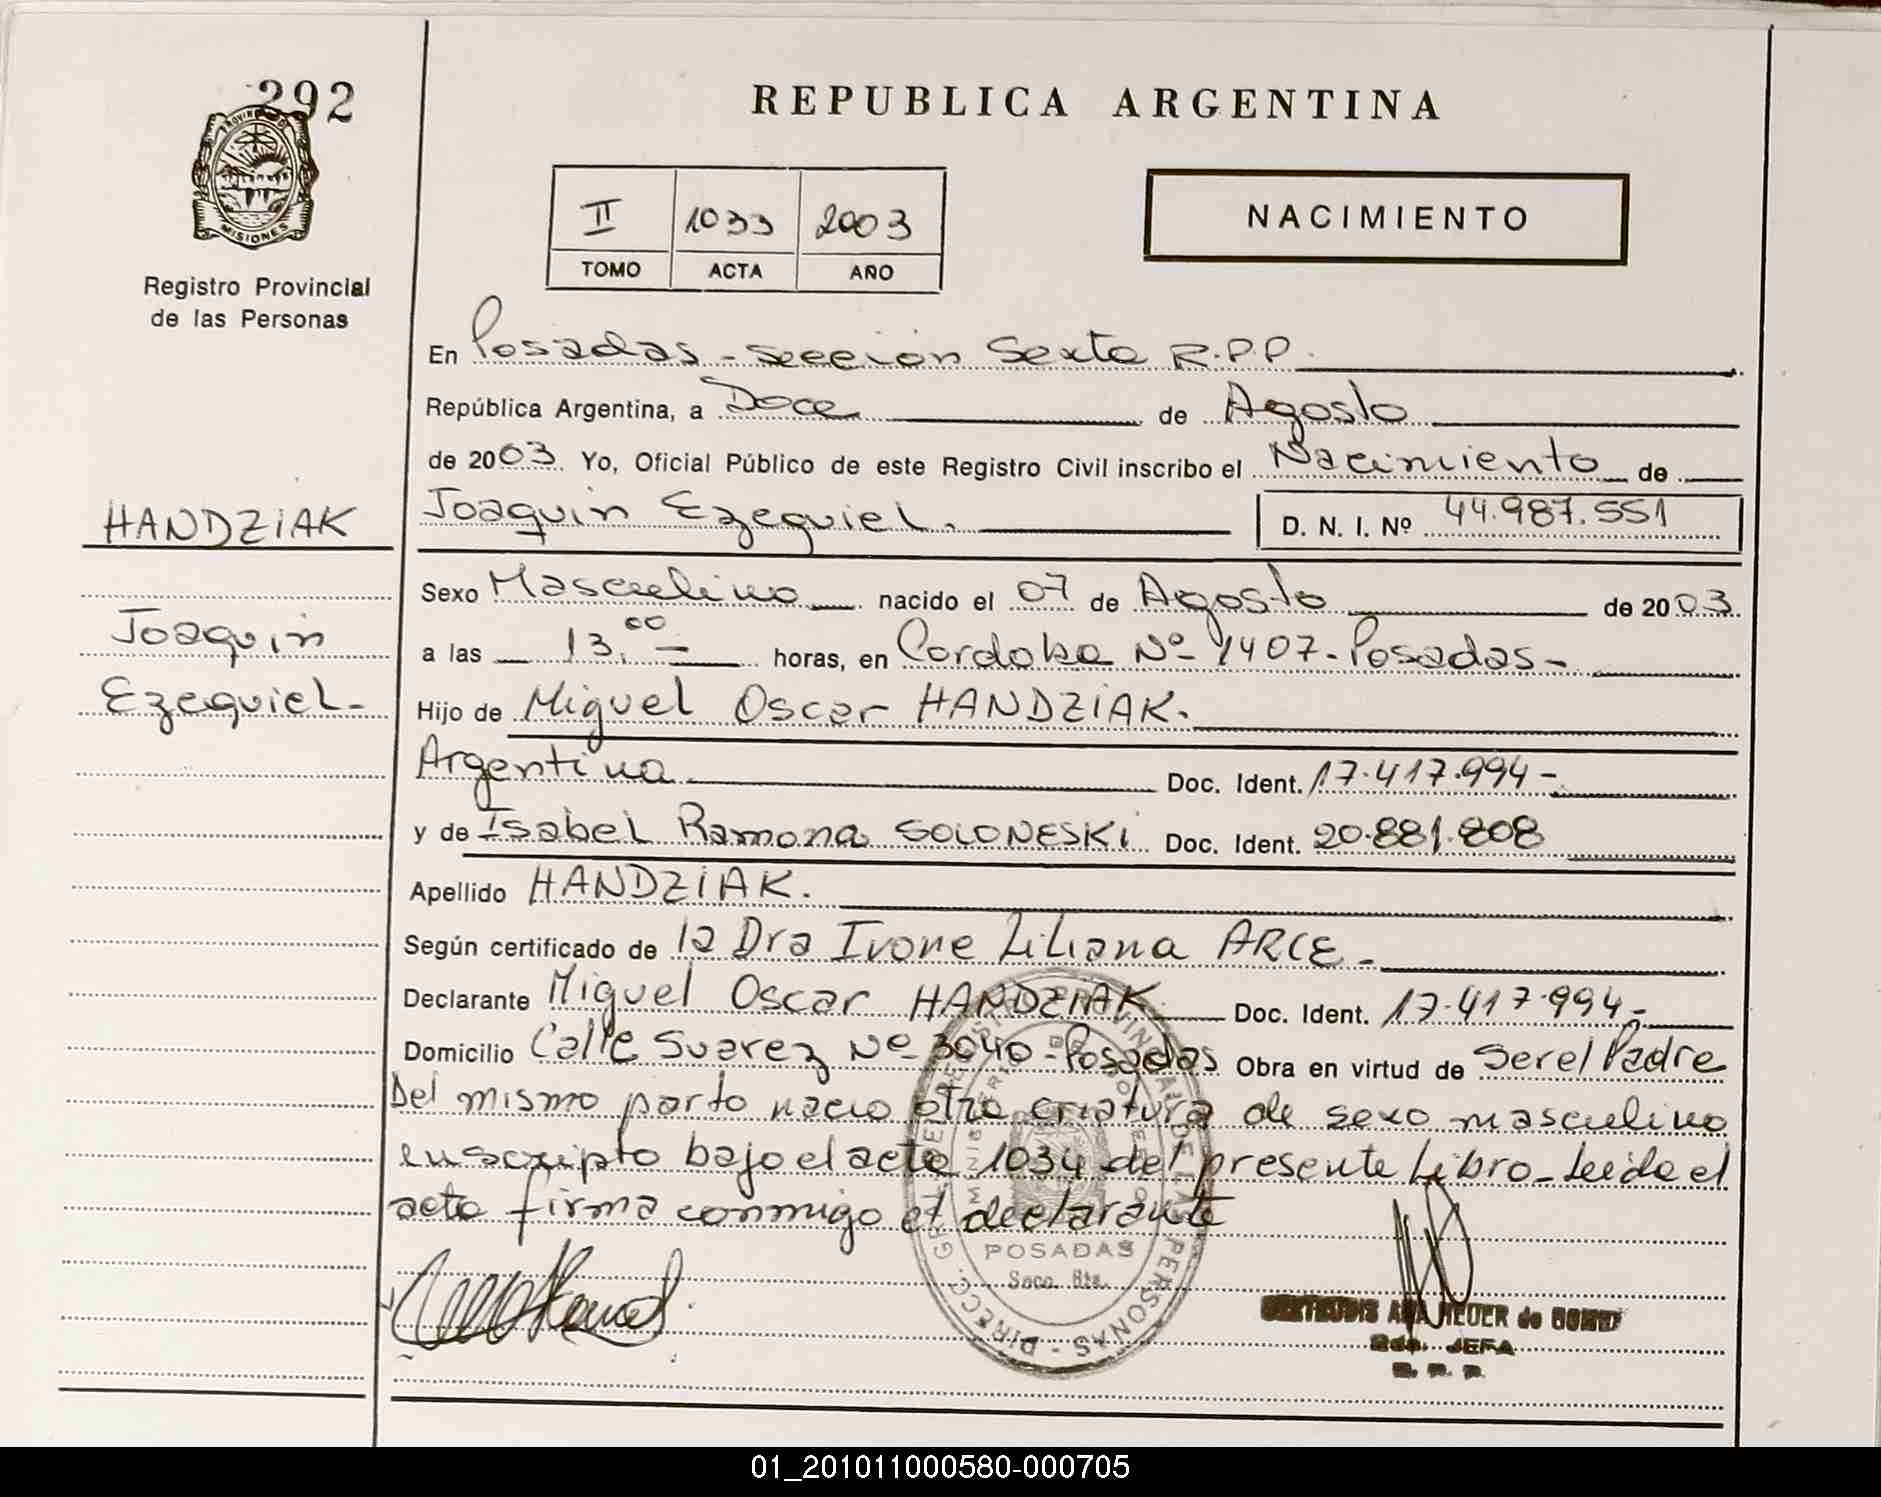 292
PROVINCIA DE
MISIONES
Registro Provincial
de las Personas
HANDZIAK
Joaquin
Ezequiel-
REPUBLICA ARGENTINA
II 1033 2003
TOMO ACTA AÑO
NACIMIENTO
En Posadas - Sección Sexta R.P.P.
República Argentina, a Doce de Agosto
de 2003. Yo, Oficial Público de este Registro Civil inscribo el Nacimiento de
Joaquin Ezequiel. D. N. I. Nº 44.987.551
Sexo Masculino nacido el 07 de Agosto de 2003.
a las 13,00- horas, en Cordoba Nº 1407- Posadas-
Hijo de Miguel Oscar HANDZIAK.
Argentina Doc. Ident. 17.417.994-
y de Isabel Ramona SOLONESKI Doc. Ident. 20.881.808
Apellido HANDZIAK.
Según certificado de la Dra Ivone Liliana ARCE-
Declarante Miguel Oscar HANDZIAK Doc. Ident. 17.417.994-
Domicilio Calle Suarez Nº 3040-Posadas Obra en virtud de Ser el Padre
Del mismo parto nacio otra criatura de sexo masculino
inscripto bajo el acta 1034 del presente Libro- Leida el
acta firma conmigo el declarante
POSADAS
Secc. 6ta.
ANA HEUER de
2da. JEFA
R. P. P.
01_201011000580-000705